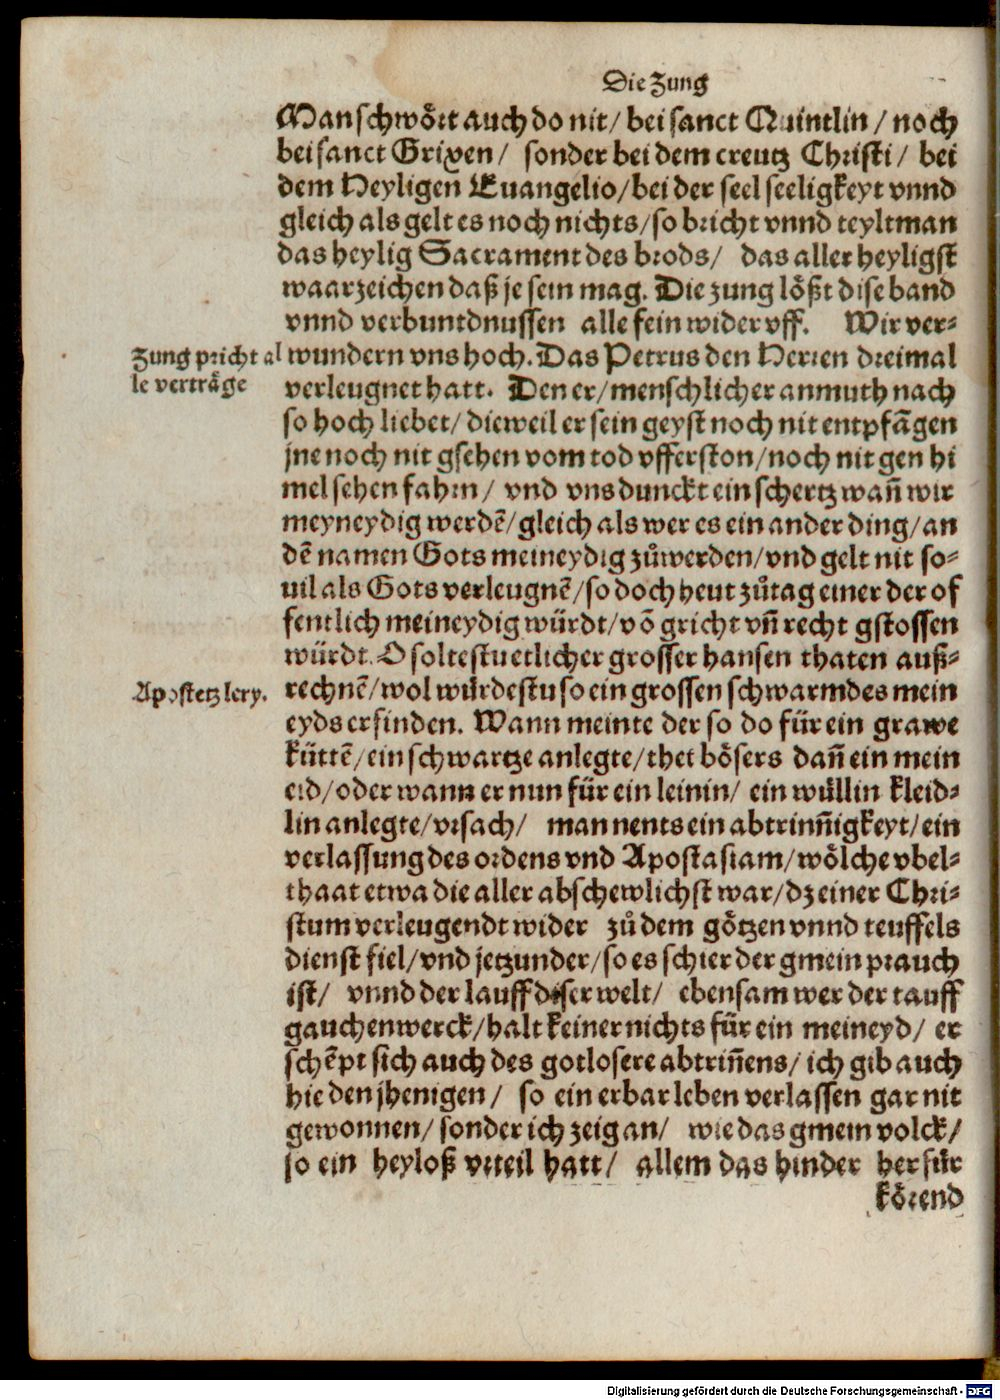 Die Zung
Man schwoͤrt auch do nit/ bei sanct Quintlin/ noch
bei sanct Grixen/ sonder bei dem creutz Christi/ bei
dem Heyligen Euangelio/ bei der seel seeligkeyt vnnd
gleich als gelt es noch nichts/ so bricht vnnd teylt man
das heylig Sacrament des brods/ das aller heyligst
waarzeichen daß je sein mag. Die zung loͤßt dise band
vnnd verbuntdnussen alle fein wider vff. Wir ver-
Zung pricht al
le vertraͤge
wundern vns hoch. Das Petrus den Herren dreimal
verleugnet hatt. Den er/ menschlicher anmuth nach
so hoch liebet/ dieweil er sein geyst noch nit entpfãgen
jne noch nit gsehen vom tod vfferston/ noch nit gen hi
mel sehen fahrn/ vnd vns dunckt ein schertz wañ wir
meyneydig werdẽ/ gleich als wer es ein ander ding/ an
dẽ namen Gots meineydig zuͦwerden/ vnd gelt nit so-
uil als Gots verleugnẽ/ so doch heut zuͦtag einer der of
fentlich meineydig würdt/ võ gricht vñ recht gstossen
würdt. O soltestu etlicher grosser hansen thaten auß-
Apostetzlery.
rechnẽ/ wol würdestu so ein grossen schwarm des mein
eyds erfinden. Wann meinte der so do für ein grawe
küttẽ/ ein schwartze anlegte/ thet boͤsers dañ ein mein
eid/ oder wann er nun für ein leinin/ ein wüllin kleid-
lin anlegte/ vrsach/ man nents ein abtrinñigkeyt/ ein
verlassung des ordens vnd Apostasiam/ woͤlche vbel-
thaat etwa die aller abschewlichst war/ dz einer Chri-
stum verleugendt wider zuͦ dem goͤtzen vnnd teuffels
dienst fiel/ vnd jetzunder/ so es schier der gmein prauch
ist/ vnnd der lauff diser welt/ ebensam wer der tauff
gauchenwerck/ halt keiner nichts für ein meineyd/ er
schẽpt sich auch des gotlosere abtriñens/ ich gib auch
hie den jhenigen/ so ein erbar leben verlassen gar nit
gewonnen/ sonder ich zeig an/ wie das gmein volck/
so ein heyloß vrteil hatt/ allem das hinder herfür
koͤrend
Digitalisierung gefördert durch die Deutsche Forschungsgemeinschaft - DFG